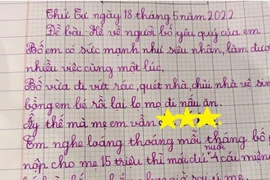 Thứ Tư ngày 18 tháng 5 năm 2022
Đề bài: Kể về người bố yêu quý của em
Bố em có sức mạnh như siêu nhân, làm được
nhiều việc cùng một lúc.
Bố vừa đi vứt rác, quét nhà, chùi nhà vệ sinh
bồng em bé rồi lại lo mẹ đi nấu ăn.
Ấy thế mà mẹ em vẫn
Em nghe loáng thoáng mỗi tháng bố phải
nộp cho mẹ 15 triệu thì mới đủ nuôi 4 cái miệng